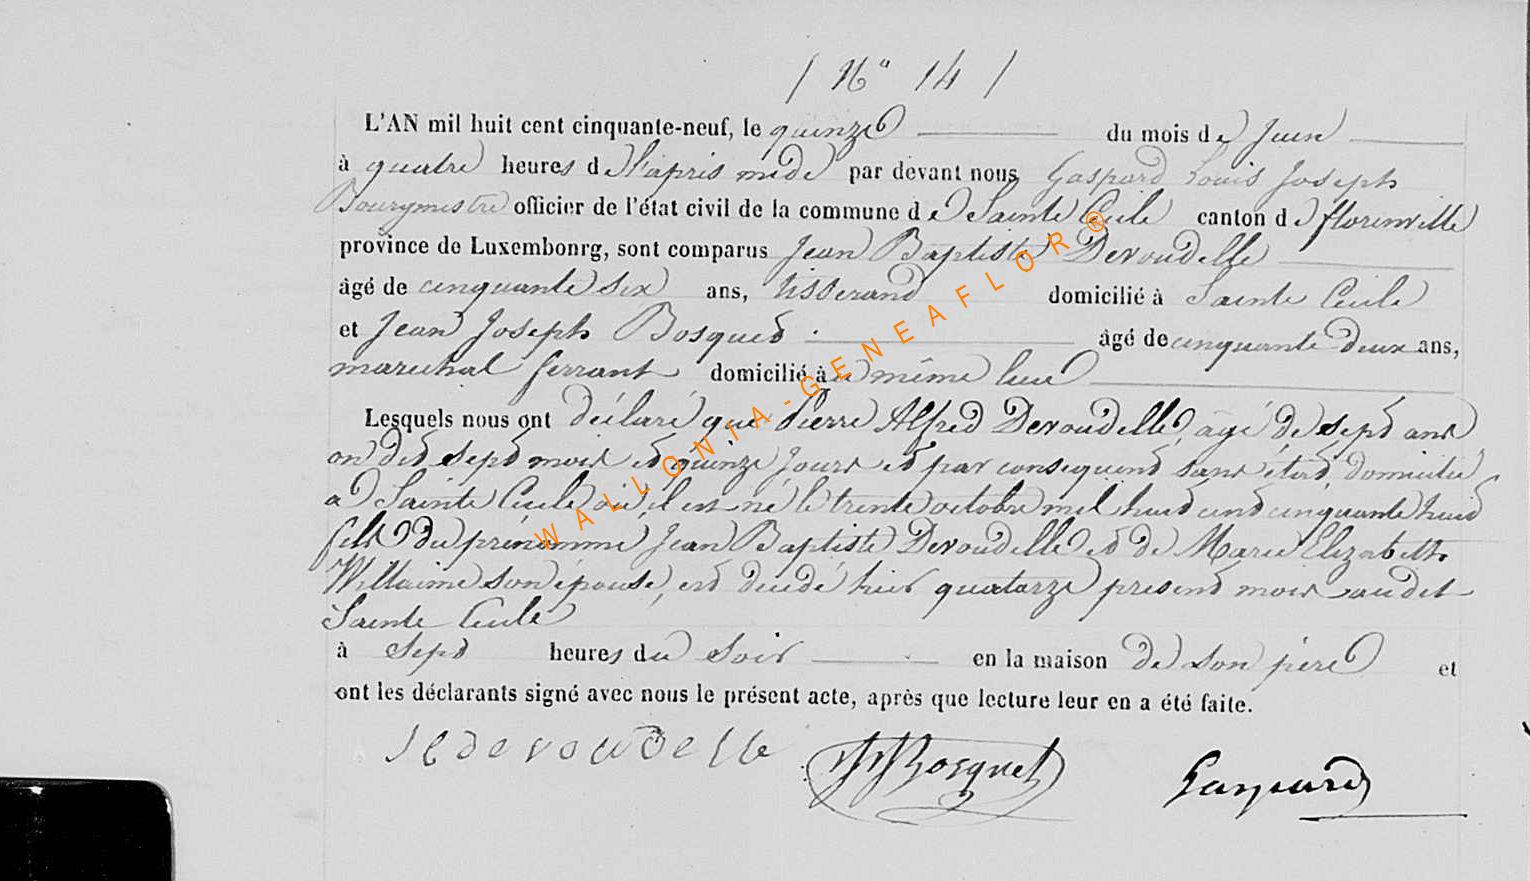 / N° 14 /
L'AN mil huit cent cinquante-neuf, le quinze du mois de Juin
à quatre heures de l'apris midi par devant nous Gaspard Louis Joseph
Bourgmestre officier de l'état civil de la commune de Sainte Cecile canton de florenville
province de Luxembonrg, sont comparus Jean Baptiste Devoudelle
âgé de cinquante six ans, tisserand domicilié à Sainte Cecile
et Jean Joseph Bosquet âgé de cinquante deux ans,
marechal ferrant domicilié à même lieu
Lesquels nous ont déclaré que Pierre Alfred Devoudelle, agé de sept ans
on dit sept mois et quinze jours et par consequent sans état, domicilié
a Sainte Cecile où il est né le trente octobre mil huit cent cinquante huit
fils du prénommé Jean Baptiste Devoudelle et de Marie Elizabeth
Willaime son épouse, est decédé hier quatorze present mois audit
Sainte Cecile
à sept heures du soir en la maison de son père et
ont les déclarants signé avec nous le présent acte, après que lecture leur en a été faite.
devoudelle JJ Bosquet Gaspard
WALLONIA-GENEAFLOR®